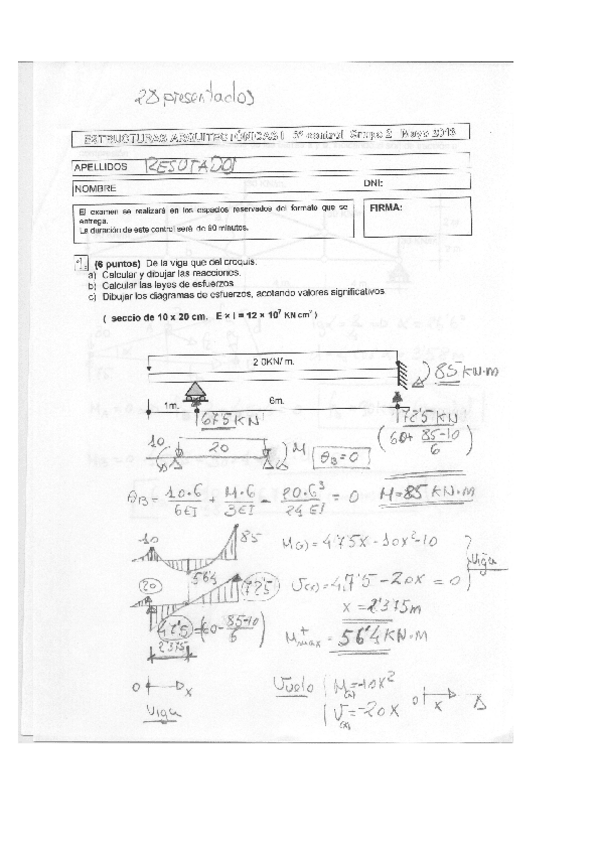 28 presentados
ESTRUCTURAS ARQUITECTÓNICAS I 3º control Grupo 2 Mayo 2013
APELLIDOS RESUTADOS
NOMBRE DNI:
El examen se realizará en los espacios reservados del formato que se
entrega.
La duración de este control será de 90 minutos.
FIRMA:
1. (6 puntos) De la viga que del croquis.
a) Calcular y dibujar las reacciones.
b) Calcular las leyes de esfuerzos
c) Dibujar los diagramas de esfuerzos, acotando valores significativos
( seccio de 10 x 20 cm. E × I = 12 × 10⁷ KN cm² )
2 0KN/ m.
85 KN·m
1m. 6m.
67'5 KN
72'5 KN
(60+ 85-10/6)
10 20 M θB=0
θB = 10·6/6EI + M·6/3EI - 20·6³/24EI = 0 M=85 KN·M
10 85
56'4
M(x) = 47'5x - 10x² - 10
Viga
20 72'5
V(x) = 47'5 - 20x = 0
x = 2'375m
47'5 = (60 - 85-10/6)
2'375
M⁺max = 56'4 KN·M
0 x
Viga
Vuelo
M(x) = -10x²
V(x) = -20x
0 x